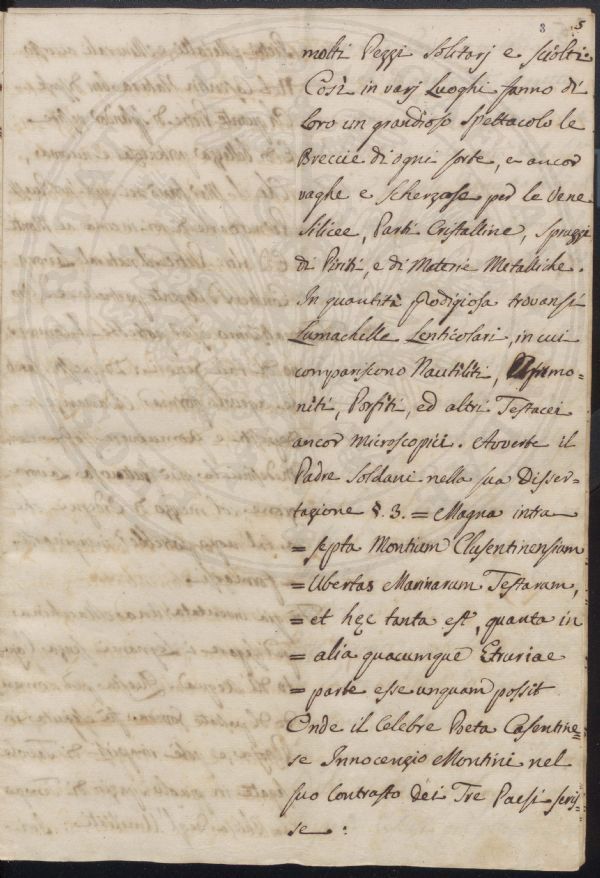 8 5
molti Pezzi solitarj e sciolti.
Così in varj Luoghi fanno di
loro un grandioso spettacolo le
Breccie di ogni sorte, e ancor
vaghe e scherzose per le Vene
Silicee, Parti Cristalline, spruzzi
di Piriti, e di Materie Metalliche.
In quantità prodigiosa trovansi
Lumachelle Lenticolari, in cui
compariscono Nautiliti, Ammo=
niti, Porfiti, ed altri Testacei
ancor microscopici. Avverte il
Padre Soldani nella sua Disser=
tazione §. 3. = Magna intra
= septa Montium Clusentinensium
= Ubertas Marinarum Testarum,
= et hęc tanta est, quanta in
= alia quacumque Etruriae
= parte esse unquam possit
Onde il Celebre Poeta Casentine=
se Innocenzio Montini nel
suo Contrasto dei Tre Paesi scris=
se :